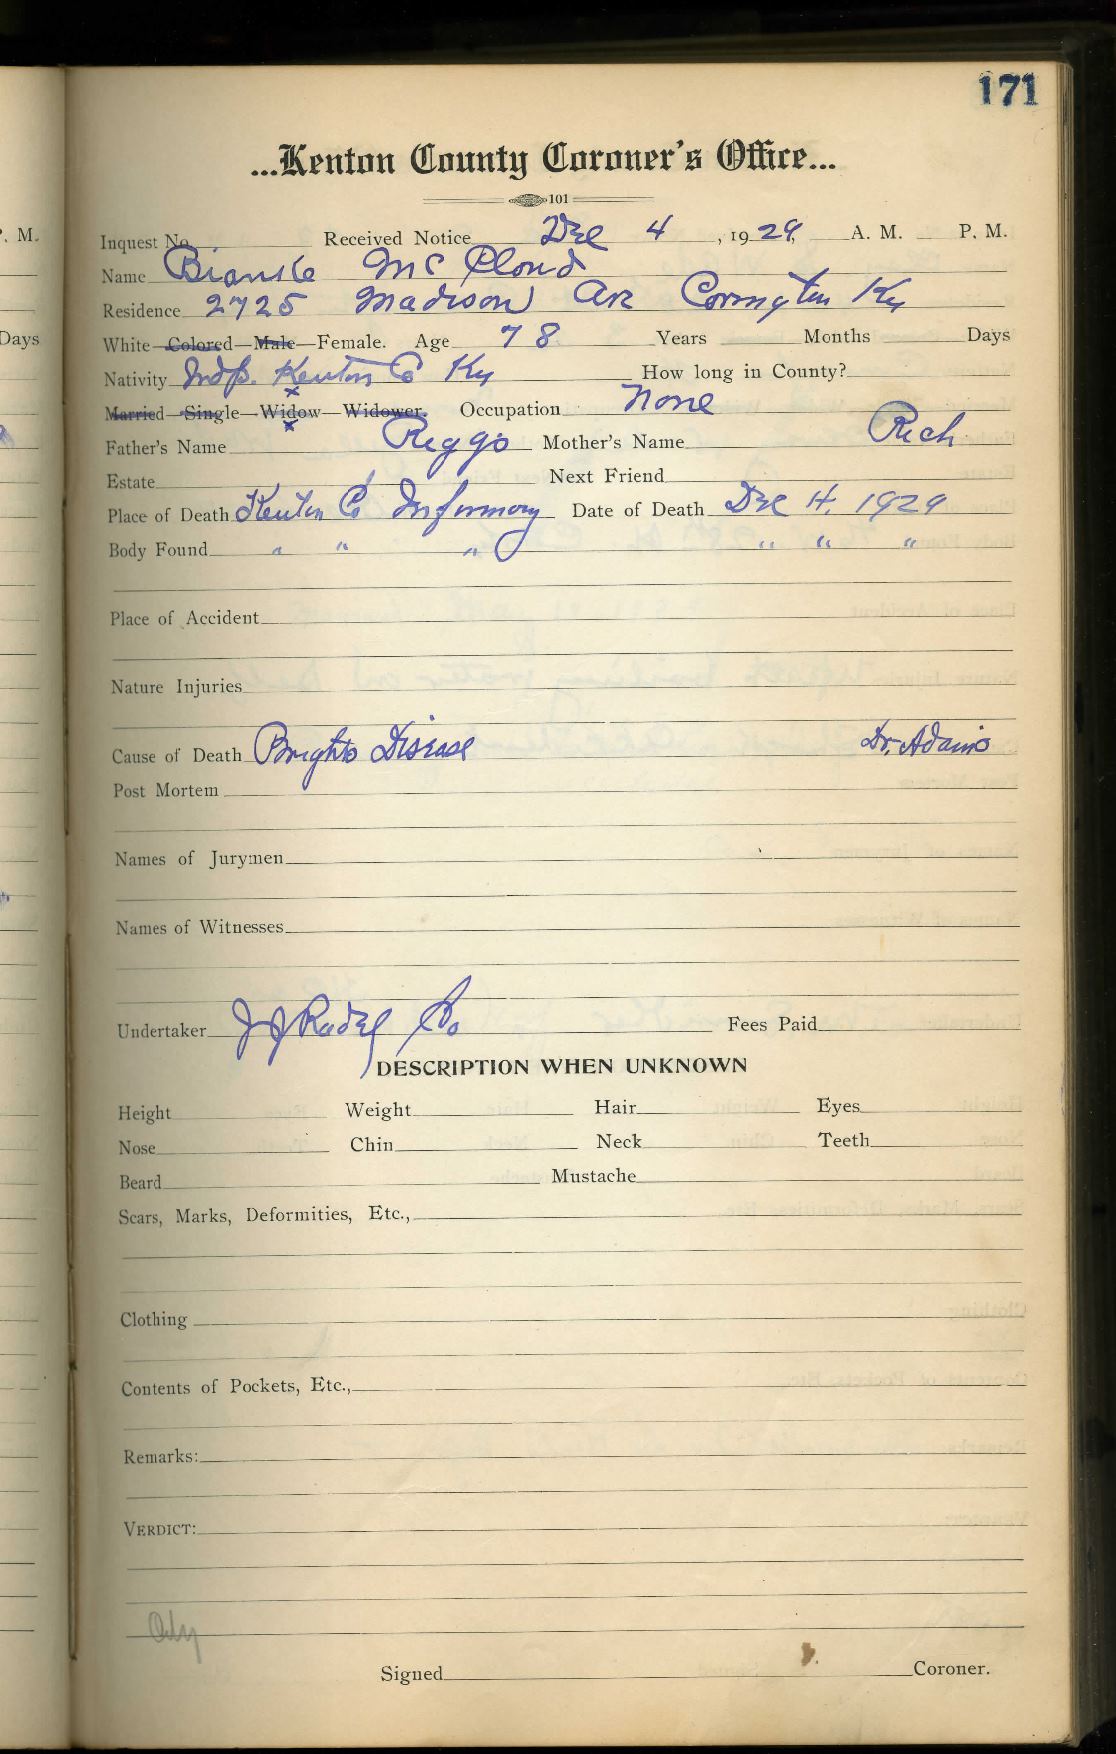 171
...Kenton County Coroner's Office...
101
Inquest No. Received Notice Dec 4, 1929, A. M. P. M.
Name Mc Cloud
Residence 2725 Madison Ave Covington Ky
White—Colored—Male—Female. Age 78 Years Months Days
Nativity Indp. Kenton Co Ky How long in County?
Married—Single—Widow—Widower. Occupation None
x
x
Father's Name Riggs Mother's Name Rich
Estate Next Friend
Place of Death Kenton Co Infirmory Date of Death Dec 4, 1929
Body Found " " " " " "
Place of Accident
Nature Injuries
Cause of Death Brights Disease Dr. Adams
Post Mortem
Names of Jurymen
Names of Witnesses
Undertaker J J Radel Co Fees Paid
DESCRIPTION WHEN UNKNOWN
Height Weight Hair Eyes
Nose Chin Neck Teeth
Beard Mustache
Scars, Marks, Deformities, Etc.,
Clothing
Contents of Pockets, Etc.,
Remarks:
VERDICT:
Signed Coroner.
P. M.
Days